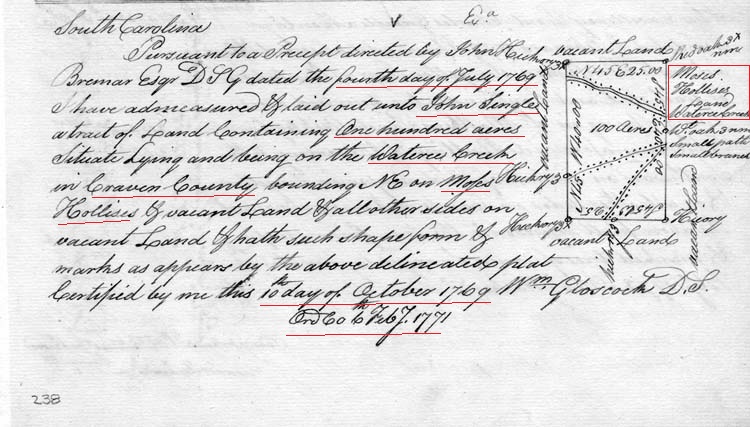 South Carolina
Exa
Pursuant to a Precept directed by John
Bremar Esqr D S G dated the fourth day of July 1769
I have admeasured & laid out unto John Single
a tract of Land Containing One hundred acres
Situate Lying and being on the Wateree Creek
in Craven County bounding NE on Moses
Hollises & vacant Land & all other sides on
vacant Land & hath such shape form &
marks as appears by the above delineated plat
Certified by me this 10th day of October 1769 Wm Gloscock D. S.
Ord Co 6th Feby. 1771
Hickory 3x
vacant Land
Rd oak 3x
nnre
N45E 25.00
vacant Land
N45 W40.00
100 Acres
Moses
Hollises
Land
Wateree Creek
W oak 3 nnre
Small path
Small branch
Hickry 30
Hickory 3x
S45W
Hicory
vacant Land
vacant Land
238